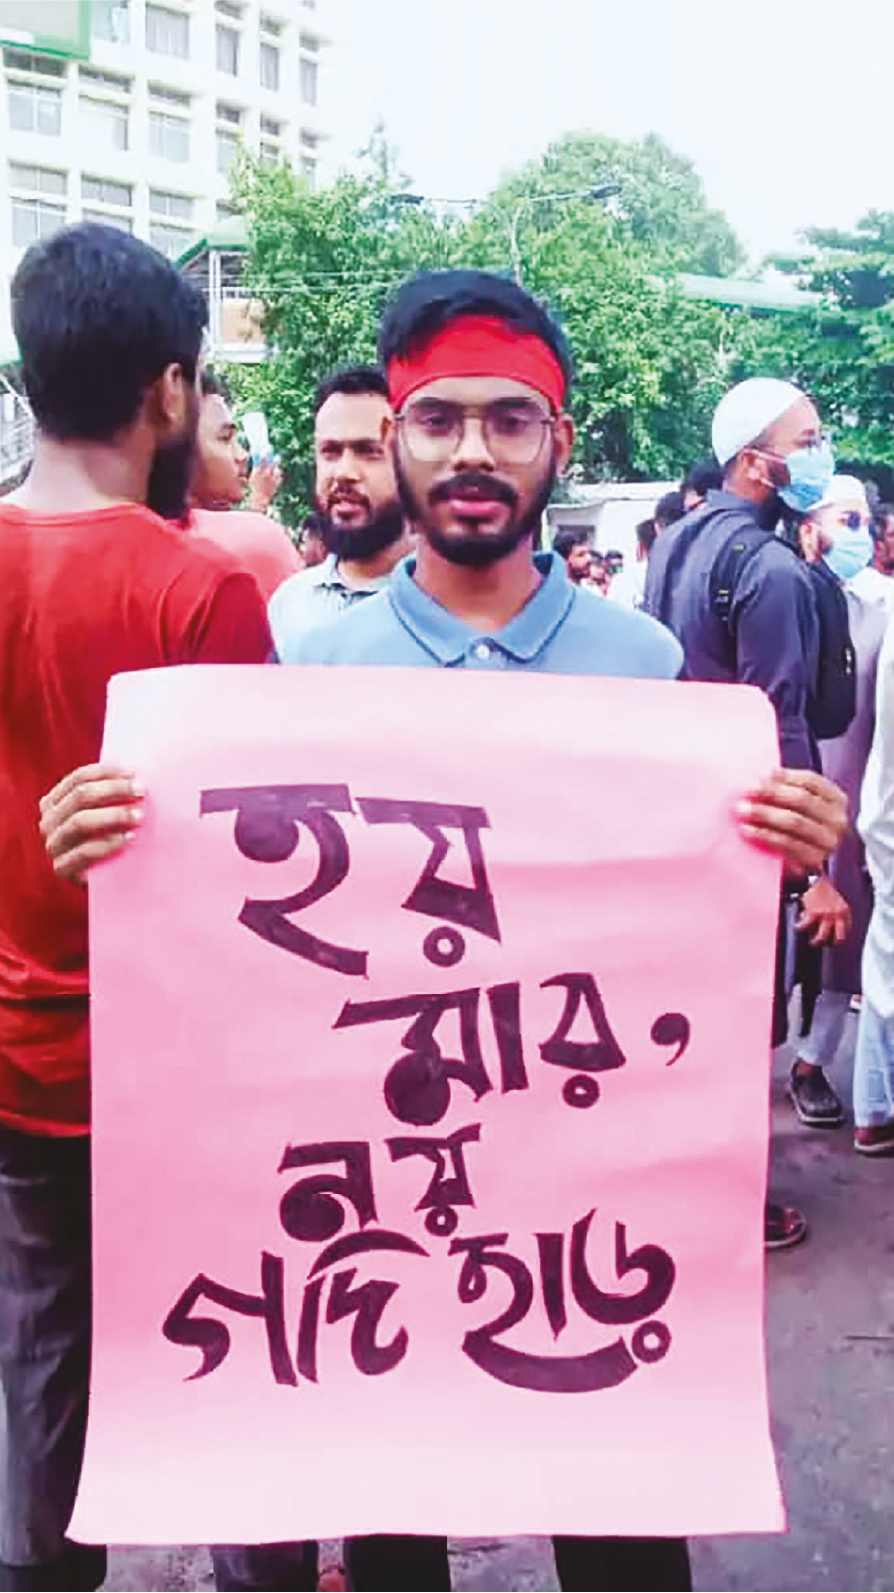 হয়
মার,
নয়
গদি ছাড়